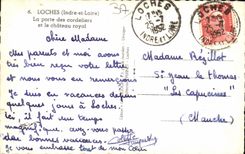 6. LOCHES (Indre-et-Loire)
La porte des cordeliers
et le château royal
37
LOCHES
INDRE ET LOIRE
LOCHES
1952
INDRE ET LOIRE
chère Madame
Mes parents et moi avons
très bien reçu votre lettre
et nous vous en remercions
Je suis en vacances depuis
quelques jours à Loches.
temps
magnifique, avez vous passé
de bonnes vacances.
Je vous embrasse de tout mon Cœur
Madame Régillot
St Jean le Thomas
"Les Capucines"
(Manche)